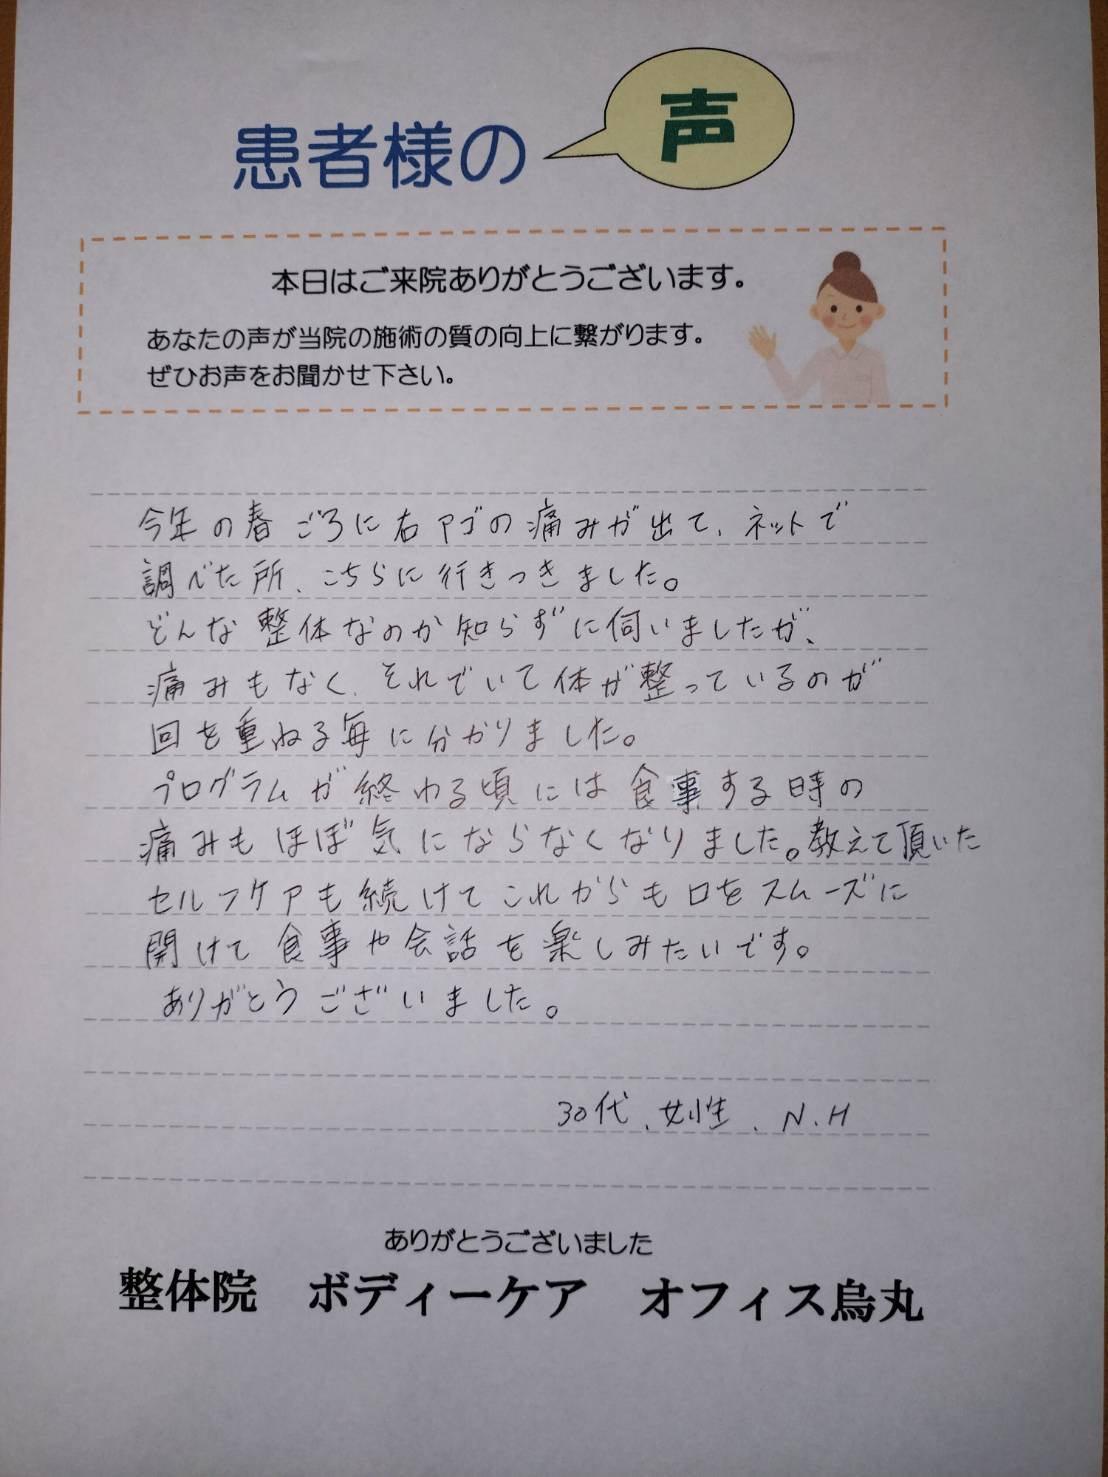 患者様の声
本日はご来院ありがとうございます。
あなたの声が当院の施術の質の向上に繋がります。
ぜひお声をお聞かせ下さい。
今年の春ごろに右アゴの痛みが出て、ネットで
調べた所、こちらに行きつきました。
どんな整体なのか知らずに伺いましたが、
痛みもなく、それでいて体が整っているのが
回を重ねる毎に分かりました。
プログラムが終わる頃には食事する時の
痛みもほぼ気にならなくなりました。教えて頂いた
セルフケアも続けてこれからも口をスムーズに
開けて食事や会話を楽しみたいです。
ありがとうございました。
30代、女性、N.H
ありがとうございました
整体院 ボディーケア オフィス烏丸